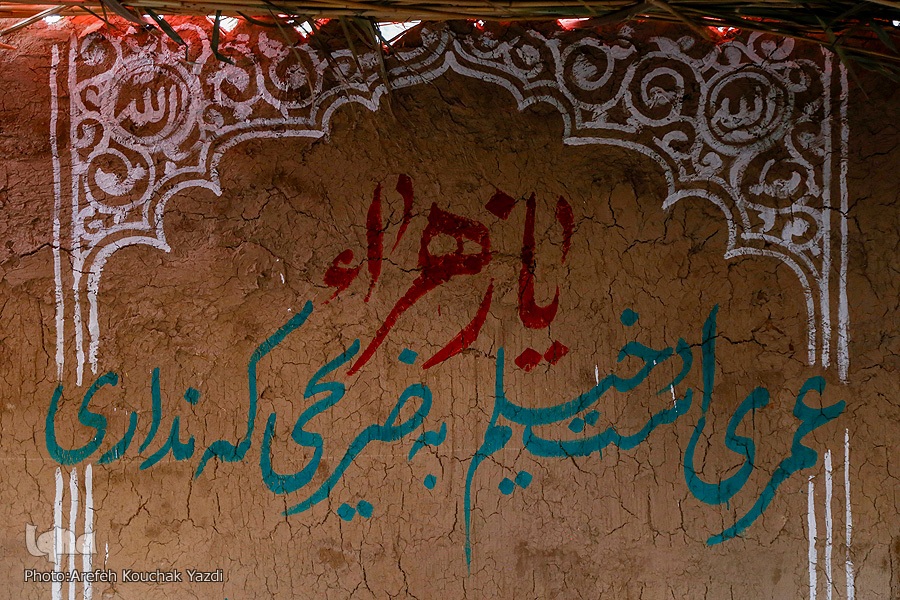 الله
الله
یا زهراء
عمری است دخیلم به ضریحی که نداری
iqna
Photo:Arefeh Kouchak Yazdi